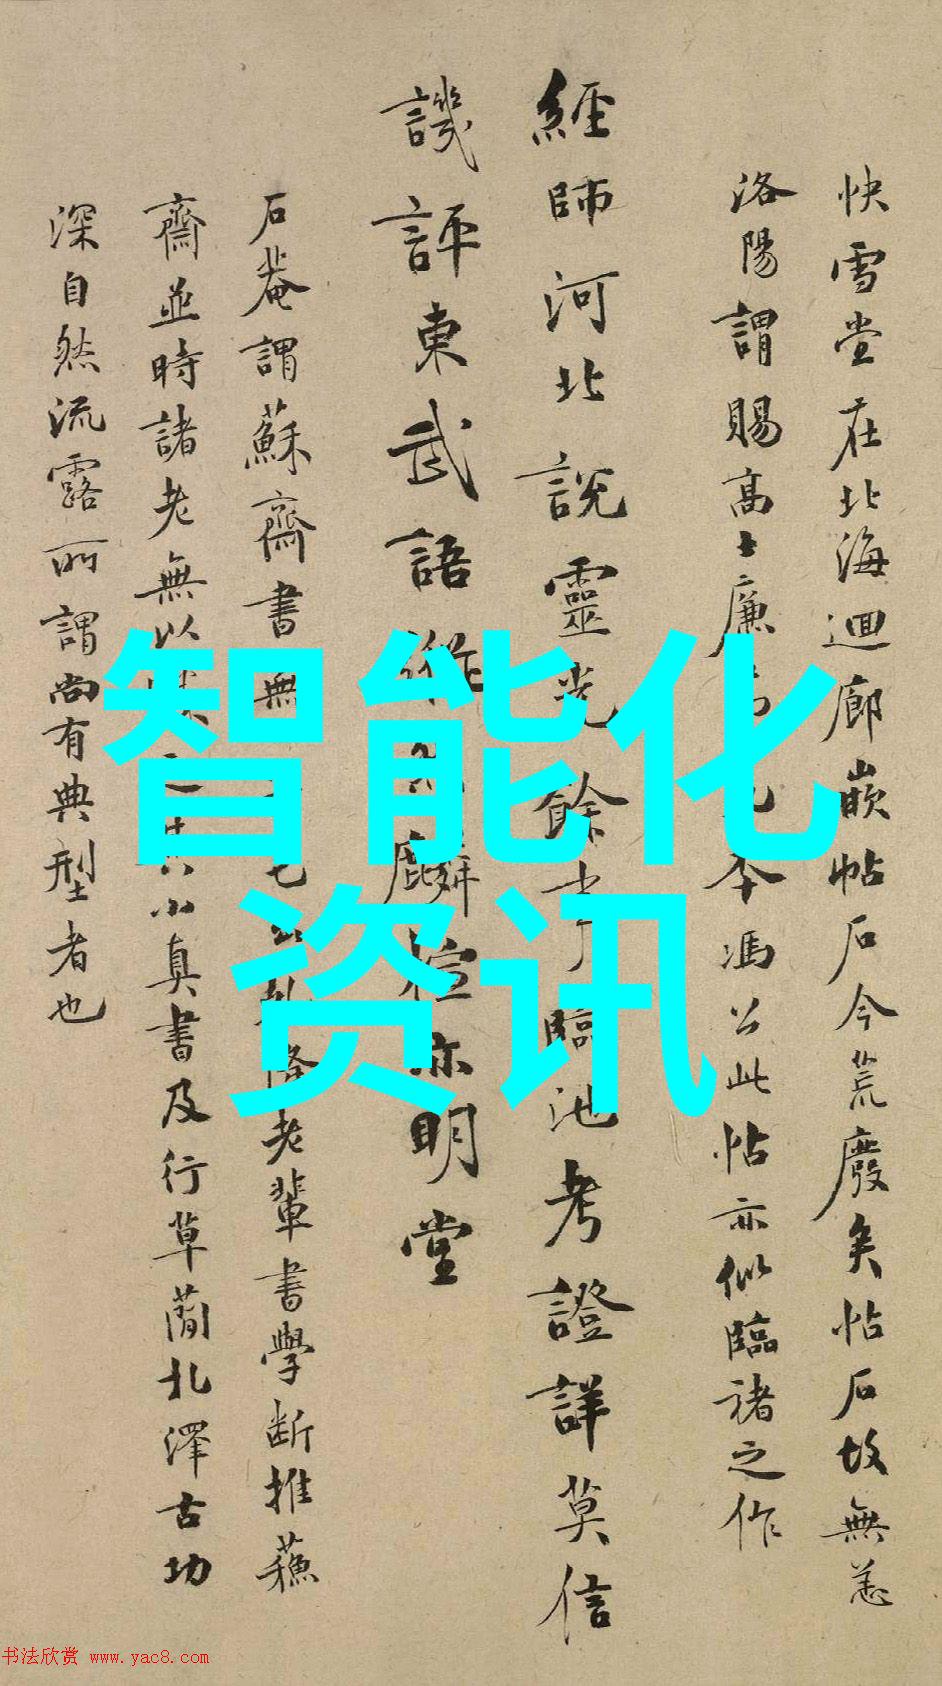 快雪堂在北海迴廊嵌帖石今荒廢矣帖石故無恙
洛陽謂賜高士廉本馮公此帖亦似臨褚之作
經師河北說靈光餘事臨池考證詳莫信
譏評東武語麟檀亦明堂
石菴謂蘇齋書無老輩書學斷推蘇
齋並時諸老無以小真書及行草蘭北澤古功
深自然流露所謂尚有典型者也
智能化
资讯
书法欣赏 www.yac8.com